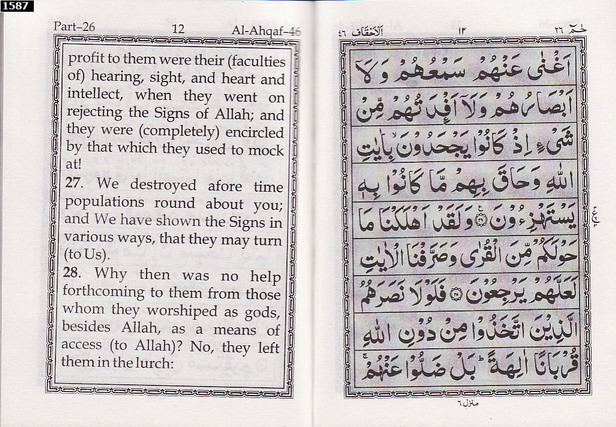 1587
Part-26 12 Al-Ahqaf-46
profit to them were their (faculties
of) hearing, sight, and heart and
intellect, when they went on
rejecting the Signs of Allah; and
they were (completely) encircled
by that which they used to mock
at!
27. We destroyed afore time
populations round about you;
and We have shown the Signs in
various ways, that they may turn
(to Us).
28. Why then was no help
forthcoming to them from those
whom they worshiped as gods,
besides Allah, as a means of
access (to Allah)? No, they left
them in the lurch:
حٰمٓ ٢٦ ١٢ اَلْاَحْقَاف ٤٦
اَغْنٰى عَنْهُمْ سَمْعُهُمْ وَ لَآ
اَبْصَارُهُمْ وَلَآ اَفْـِٕدَتُهُمْ مِّنْ
شَیْءٍ اِذْ كَانُوْا يَجْحَدُوْنَ بِاٰيٰتِ
اللّٰهِ وَحَاقَ بِهِمْ مَّا كَانُوْا بِهٖ
يَسْتَهْزِءُوْنَ ۝ وَلَقَدْ اَهْلَكْنَا مَا
حَوْلَكُمْ مِّنَ الْقُرٰى وَصَرَّفْنَا الْاٰيٰتِ
لَعَلَّهُمْ يَرْجِعُوْنَ ۝ فَلَوْلَا نَصَرَهُمُ
الَّذِيْنَ اتَّخَذُوْا مِنْ دُوْنِ اللّٰهِ
قُرْبَانًا اٰلِهَةً ؕ بَلْ ضَلُّوْا عَنْهُمْ ۚ
منزل ٦